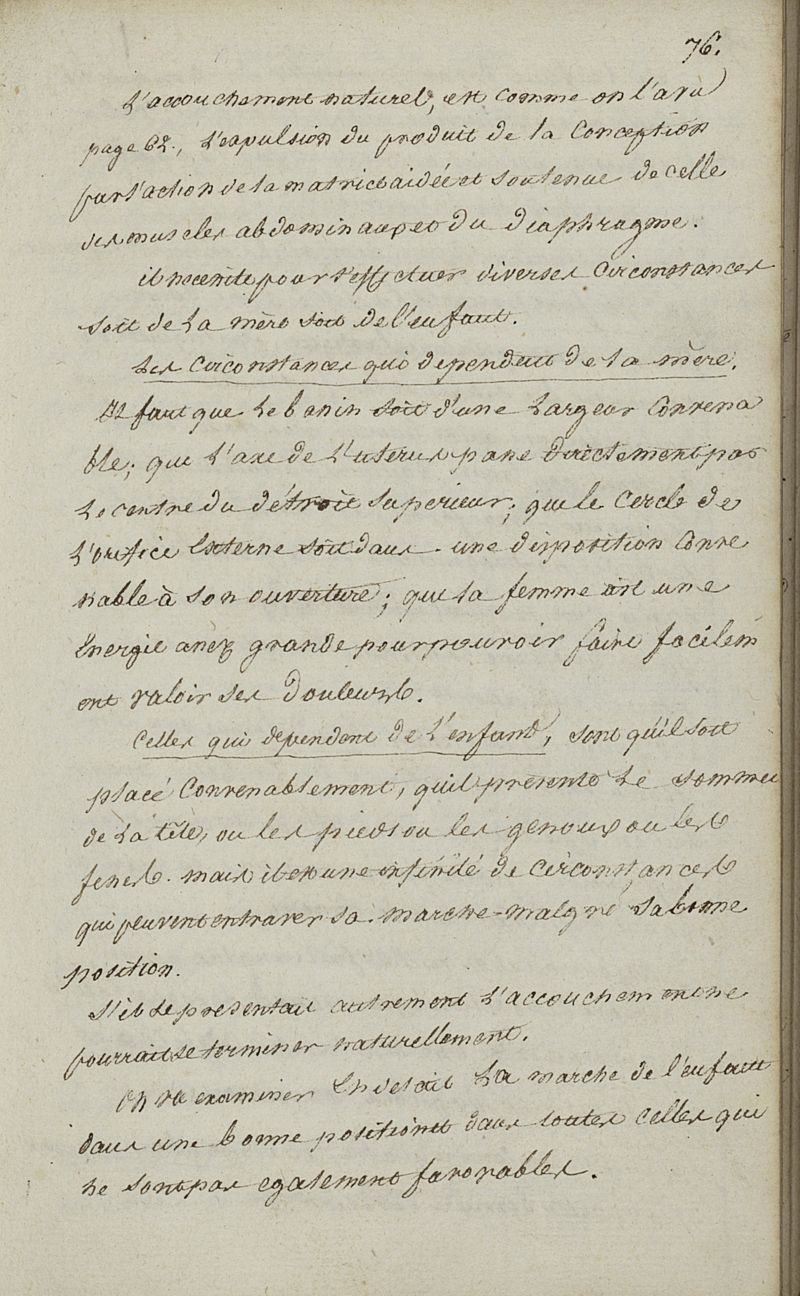 76.
L'accouchement naturel, est comme on l'a vu
page 62., L'expulsion du produit de la Conception
par l'action de la matrice aidée et soutenue de celle
des muscles abdominaux et du diaphragme.
il necessite pour s'effectuer diverses Circonstances
soit de La mère soit de l'enfant.
Les Circonstances qui dependent de la mère.
Il faut que Le bassin soit d'une Largeur Convena
ble; que L'axe de L'uterus passe directement par
Le centre du détroit Superieur; que le Cercle de
L'orifice Externe soit dans une disposition Conve
nable à son ouverture; que la femme ait une
Energie assez grande pour pouvoir faire facilem
ent valoir ses Douleurs.
Celles qui dependent de L'enfant, sont qu'il soit
placé Convenablement, qu'il presente Le sommet
de La tête, ou les pieds ou les genoux ou les
fesses. mais il est une infinité de Circonstances
qui peuvent entraver sa marche malgré sa bonne
position.
S'il se presentait autrement L'accouchement ne
pourrait se terminer naturellement.
On va examiner En detail La marche de l'enfant
dans une bonne position et dans toutes celles qui
ne sont pas egalement favorables.